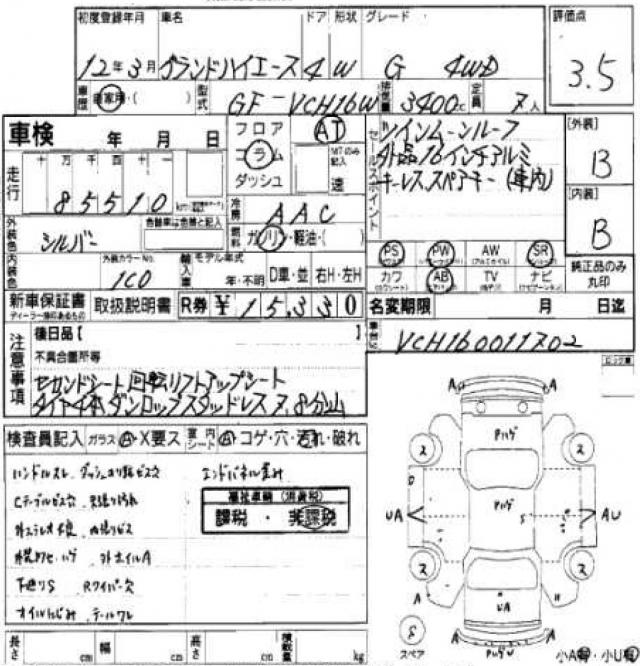 初度登録年月 車名 ドア 形状 グレード 評価点
12年3月 グランドハイエース 4 W G 4WD 3.5
車歴 自家用・( ) 型式 GF-VCH16W 排気量 3400cc 定員 7人
車検 年 月 日
フロア AT
コラム MTのみ記入
ダッシュ 速
セールスポイント
ツインムーンルーフ
外品16インチアルミ
キーレス,スペアキー(車内)
[外装] B
[内装] B
走行 十 万 千 百 十 一
85510 km
冷房 AAC
燃料 ガソリン・軽油・( )
外装色 シルバー 色替車は色替と記入
内装色 外装カラーNo. 1C0 輸入車 モデル年式 年・不明 D車・並 右H・左H
PS PW AW SR
カワ AB TV ナビ
純正品のみ丸印
新車保証書 取扱説明書 R券 ¥15,330
ディーラー捺印あるもの
名変期限 月 日迄
車台No VCH160011702
注意事項
後日品【 】
不具合箇所等
セカンドシート回転リフトアップシート
タイヤ4本ダンロップスタッドレス7,8分山
検査員記入 ガラス A・X要ス 室内シート A・コゲ・穴・汚れ・破れ
ハンドルスレ
エンドパネル歪み
福祉車輌 (消費税)
課税・非課税
外ホイルA
下廻りS Rワイパー欠
オイルにじみ テールワレ
長さ cm 幅 cm 高さ cm 積載量 kg
A A
A A
ス ス
Pハゲ
Pハゲ
UA AU
S
ス ス
UA
A A
S
スペア
PハゲU
小A有・小U有